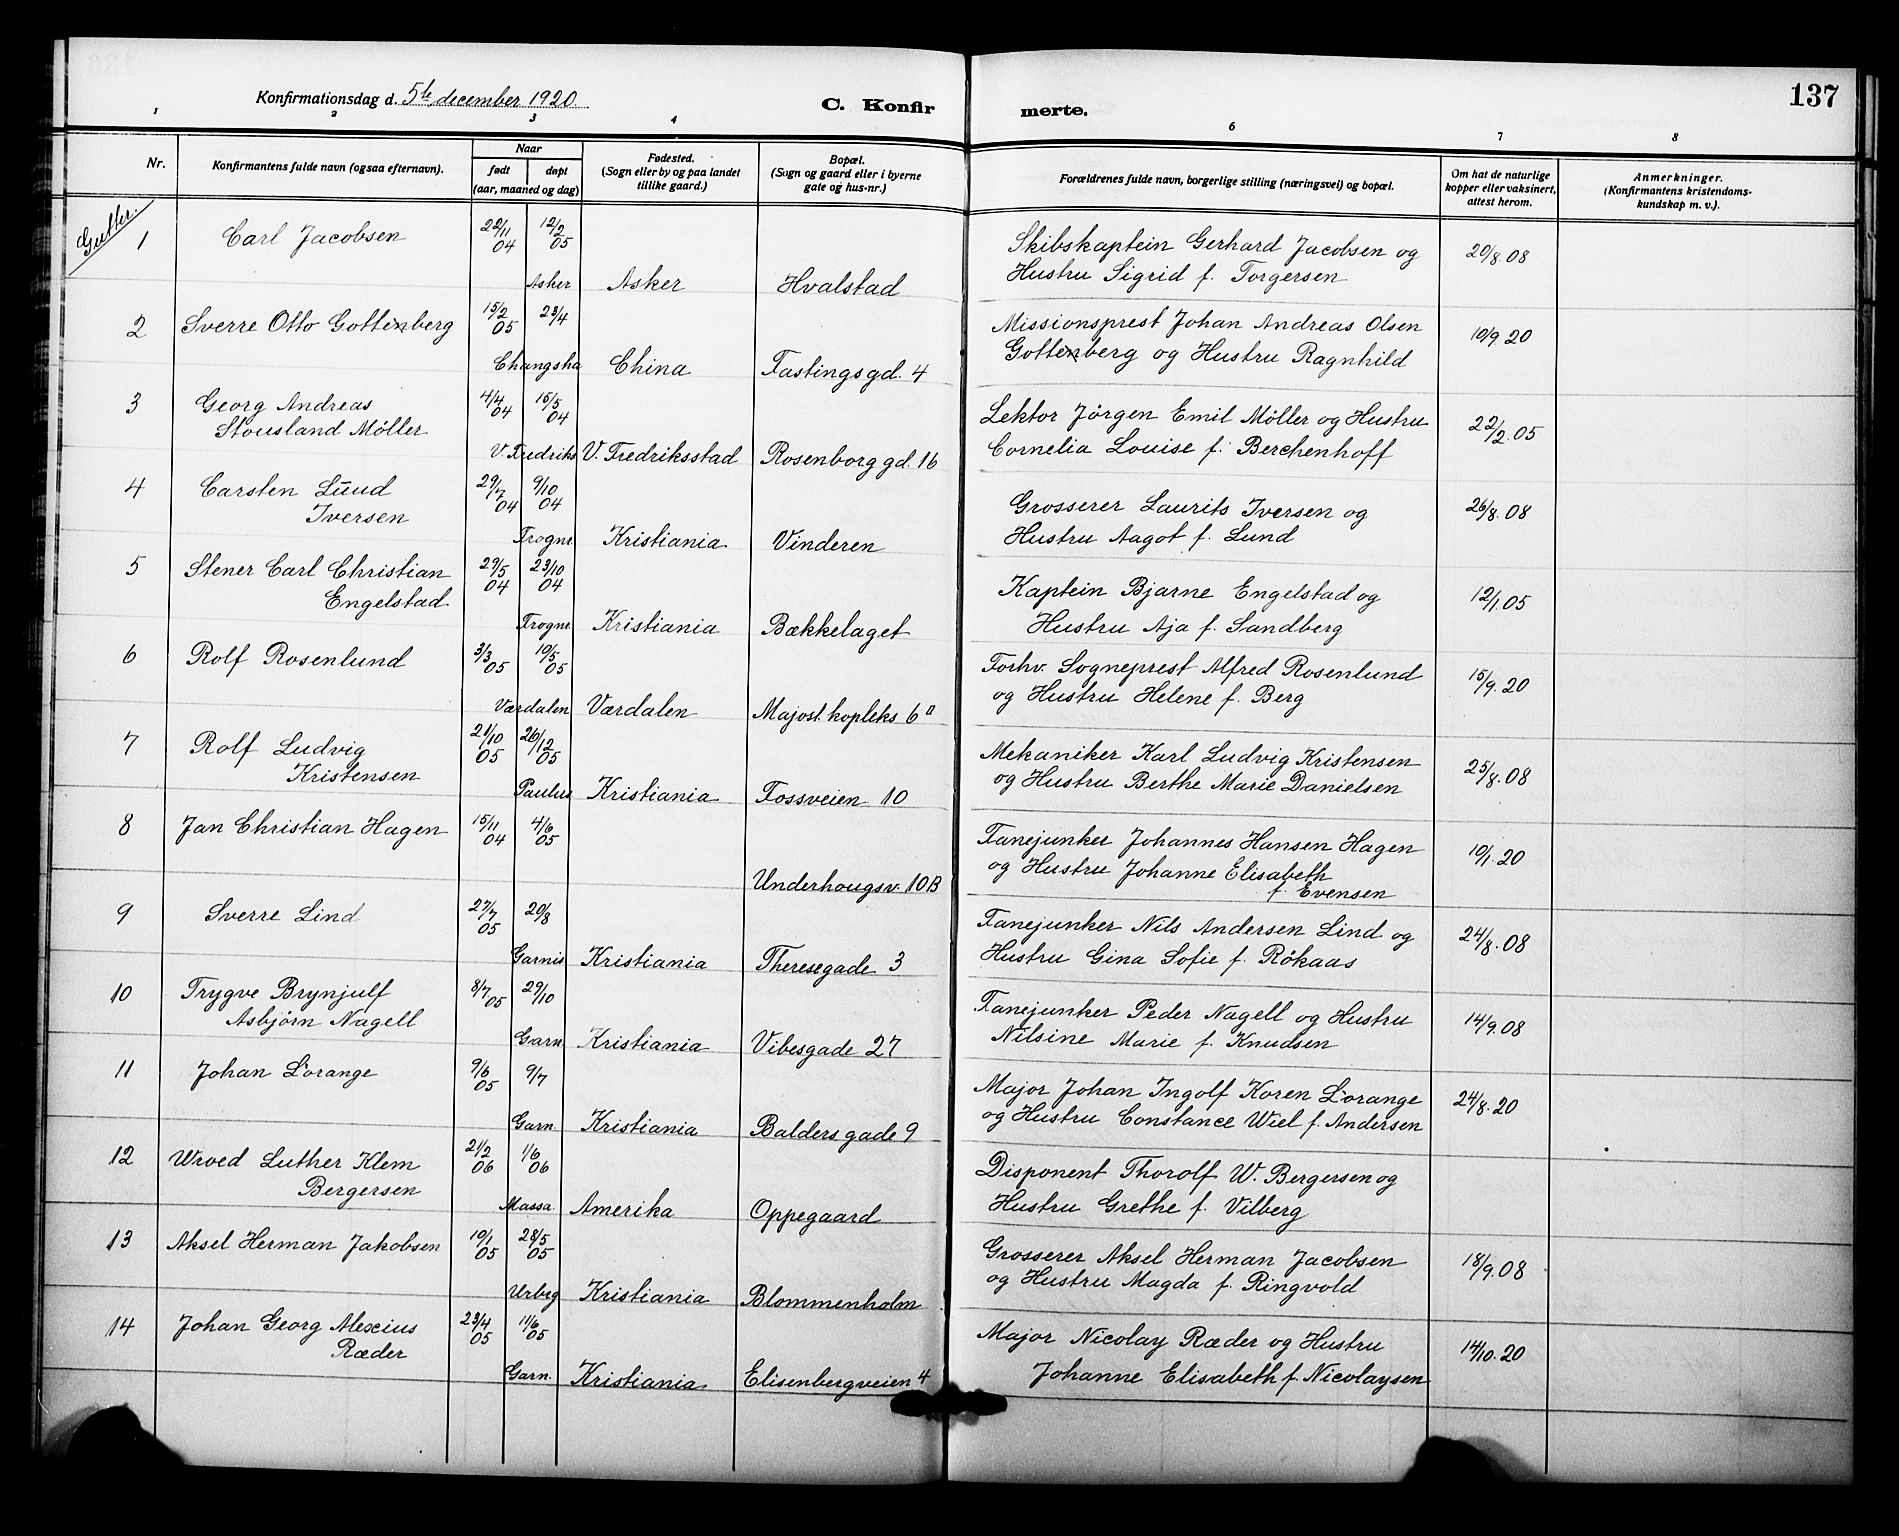 137
Konfirmationsdag d. 5te december 1920.
C. Konfir merte.
1 2 3 4 6 7 8
Nr.
Konfirmantens fulde navn (ogsaa efternavn).
Naar
født
døpt
(aar, maaned og dag)
Fødested.
(Sogn eller by og paa landet
tillike gaard.)
Bopæl.
(Sogn og gaard eller i byerne
gate og hus-nr.)
Forældrenes fulde navn, borgerlige stilling (næringsvei) og bopæl.
Om hat de naturlige
kopper eller vaksinert,
attest herom.
Anmerkninger.
(Konfirmantens kristendoms-
kundskap m. v.).
Gutter.
1 Carl Jacobsen 22/11 04 12/2 05 Skibskaptein Gerhard Jacobsen og 20/8.08
Asker Asker Hvalstad Hustru Sigrid f. Torgersen
2 Sverre Otto Gottenberg 15/2 05 23/4 Missionsprest Johan Andreas Olsen 10/9 20
Changsha China Fastingsgd. 4 Gottenberg og Hustru Ragnhild
3 Georg Andreas 4/4 04 15/5 04 Lektor Jörgen Emil Möller og Hustru 22/2.05
Stousland Möller
V. Fredriks V. Fredriksstad Rosenborg gd. 16 Cornelia Louise f. Berchenhoff
4 Carsten Lund 29/7 04 9/10 04 Grosserer Laurits Iversen og 26/8.08
Iversen
Frogner Kristiania Vinderen Hustru Aagot f. Lund
5 Stener Carl Christian 29/5 04 23/10 04 Kaptein Bjarne Engelstad og 12/1.05
Engelstad
Frogner Kristiania Bækkelaget Hustru Aja f. Sandberg
6 Rolf Rosenlund 3/3 05 10/5 05 Forhv. Sogneprest Alfred Rosenlund 15/9.20
Værdalen Værdalen Majost. kopleks 6 og Hustru Helene f. Berg
7 Rolf Ludvig 21/10 05 26/12 05 Mekaniker Karl Ludvig Kristensen 25/8.08
Kristensen
Paulus Kristiania Fossveien 10 og Hustru Berthe Marie Danielsen
8 Jan Christian Hagen 15/11 04 4/6 05 Fanejunker Johannes Hansen Hagen 10/1.20
og Hustru Johanne Elisabeth
Underhougsv. 10B f. Evensen
9 Sverre Lind 27/7 05 20/8 Fanejunker Nils Andersen Lind og 24/8.08
Garnis Kristiania Theresegade 3 Hustru Gina Sofie f. Rökaas
10 Trygve Brynjulf 8/7 05 29/10 Fanejunker Peder Nagell og Hustru 14/9.08
Asbjörn Nagell
Garn. Kristiania Vibesgade 27 Nilsine Marie f. Knudsen
11 Johan L'orange 9/6 05 9/7 Major Johan Ingolf Koren L'orange 24/8.20
Garn. Kristiania Baldersgade 9 og Hustru Constance Wiel f. Andersen
12 Wroed Luther Klem 21/2 06 1/6 06 Disponent Thorolf W. Bergersen og
Bergersen
Massa. Amerika Oppegaard Hustru Grethe f. Vilberg
13 Aksel Herman Jakobsen 10/1 05 28/5 05 Grosserer Aksel Herman Jacobsen 18/9.08
Urbyg Kristiania Blommenholm og Hustru Magda f. Ringvold
14 Johan Georg Alexius 23/4 05 11/6 05 Major Nicolay Ræder og Hustru 14/10.20
Ræder
Garn. Kristiania Elisenbergveien 4 Johanne Elisabeth f. Nicolaysen